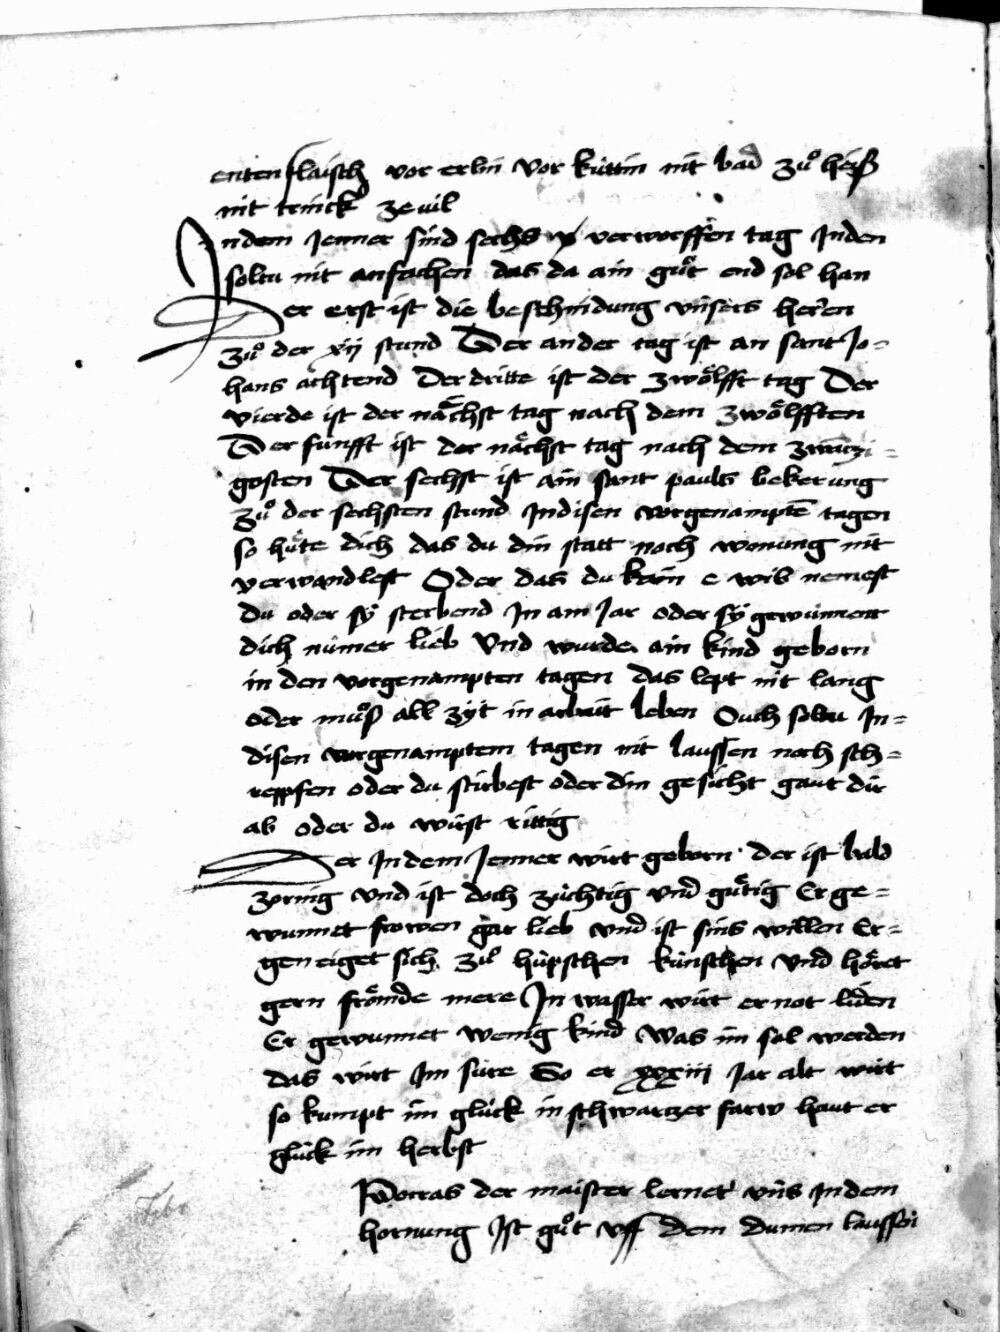 enten flaisch vor erlin vor küttin nit bad zuͦ heiß
nit trinck ze vil
Indem Jenner sind sechs verworffen tag Inden
soltu nit anfachen das da ain guͦt end sol han
Der erst ist die beschnidung vnsers herren
zuͦ der xij stund Der ander tag ist an sant Jo=
hans achtend Der dritte ist der zwölfft tag Der
vierde ist der nächst tag nach dem zwölfften
Der funfft ist der nächst tag nach dem zwaintzi=
gosten Der sechst ist ain sant pauls bekerung
zuͦ der sechsten stund Indisen vorgenampten tagen
so hüte dich das du din statt noch wonung nit
verwandlest Oder das du kain e wib nemest
du oder sÿ sterbend In am Jar oder sÿ gewunnent
dich nümer lieb Vnd wurde ain kind geborn
in den vorgenampten tagen das lept nit lang
oder muͦß all zÿt in arbait leben Ouch soltu In=
disen vorgenamptem tagen nit laussen noch sch=
reppfen oder du stirbest oder din gesicht gaut dir
ab oder du wirst rittig
Der Indem Jenner wirt geborn der ist bald
zornig vnd ist doch züchtig vnd guͤtig Er ge=
wunnet frowen gar lieb vnd ist sins willen Er=
gen eiget sich zuͦ hüpschen künsthen vnd höret
gern frömde mere In wasser wirt er not liden
Er gewunnet wenig kind Was im sol werden
das wirt Im sure So er xxxiii Jar alt wirt
so kumpt im glück in schwartzer farw haut er
glück im herbst
der maister lernet vns Indem
hornung Ist guͦt vff dem dumen laussen